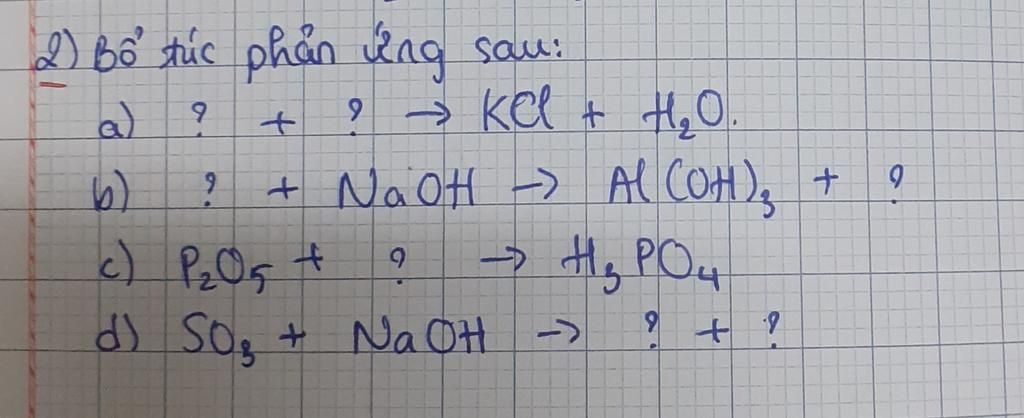 2) Bổ túc phản ứng sau:
a) ? + ? → KCl + H₂O.
b) ? + NaOH → Al(OH)₃ + ?
c) P₂O₅ + ? → H₃PO₄
d) SO₃ + NaOH → ? + ?